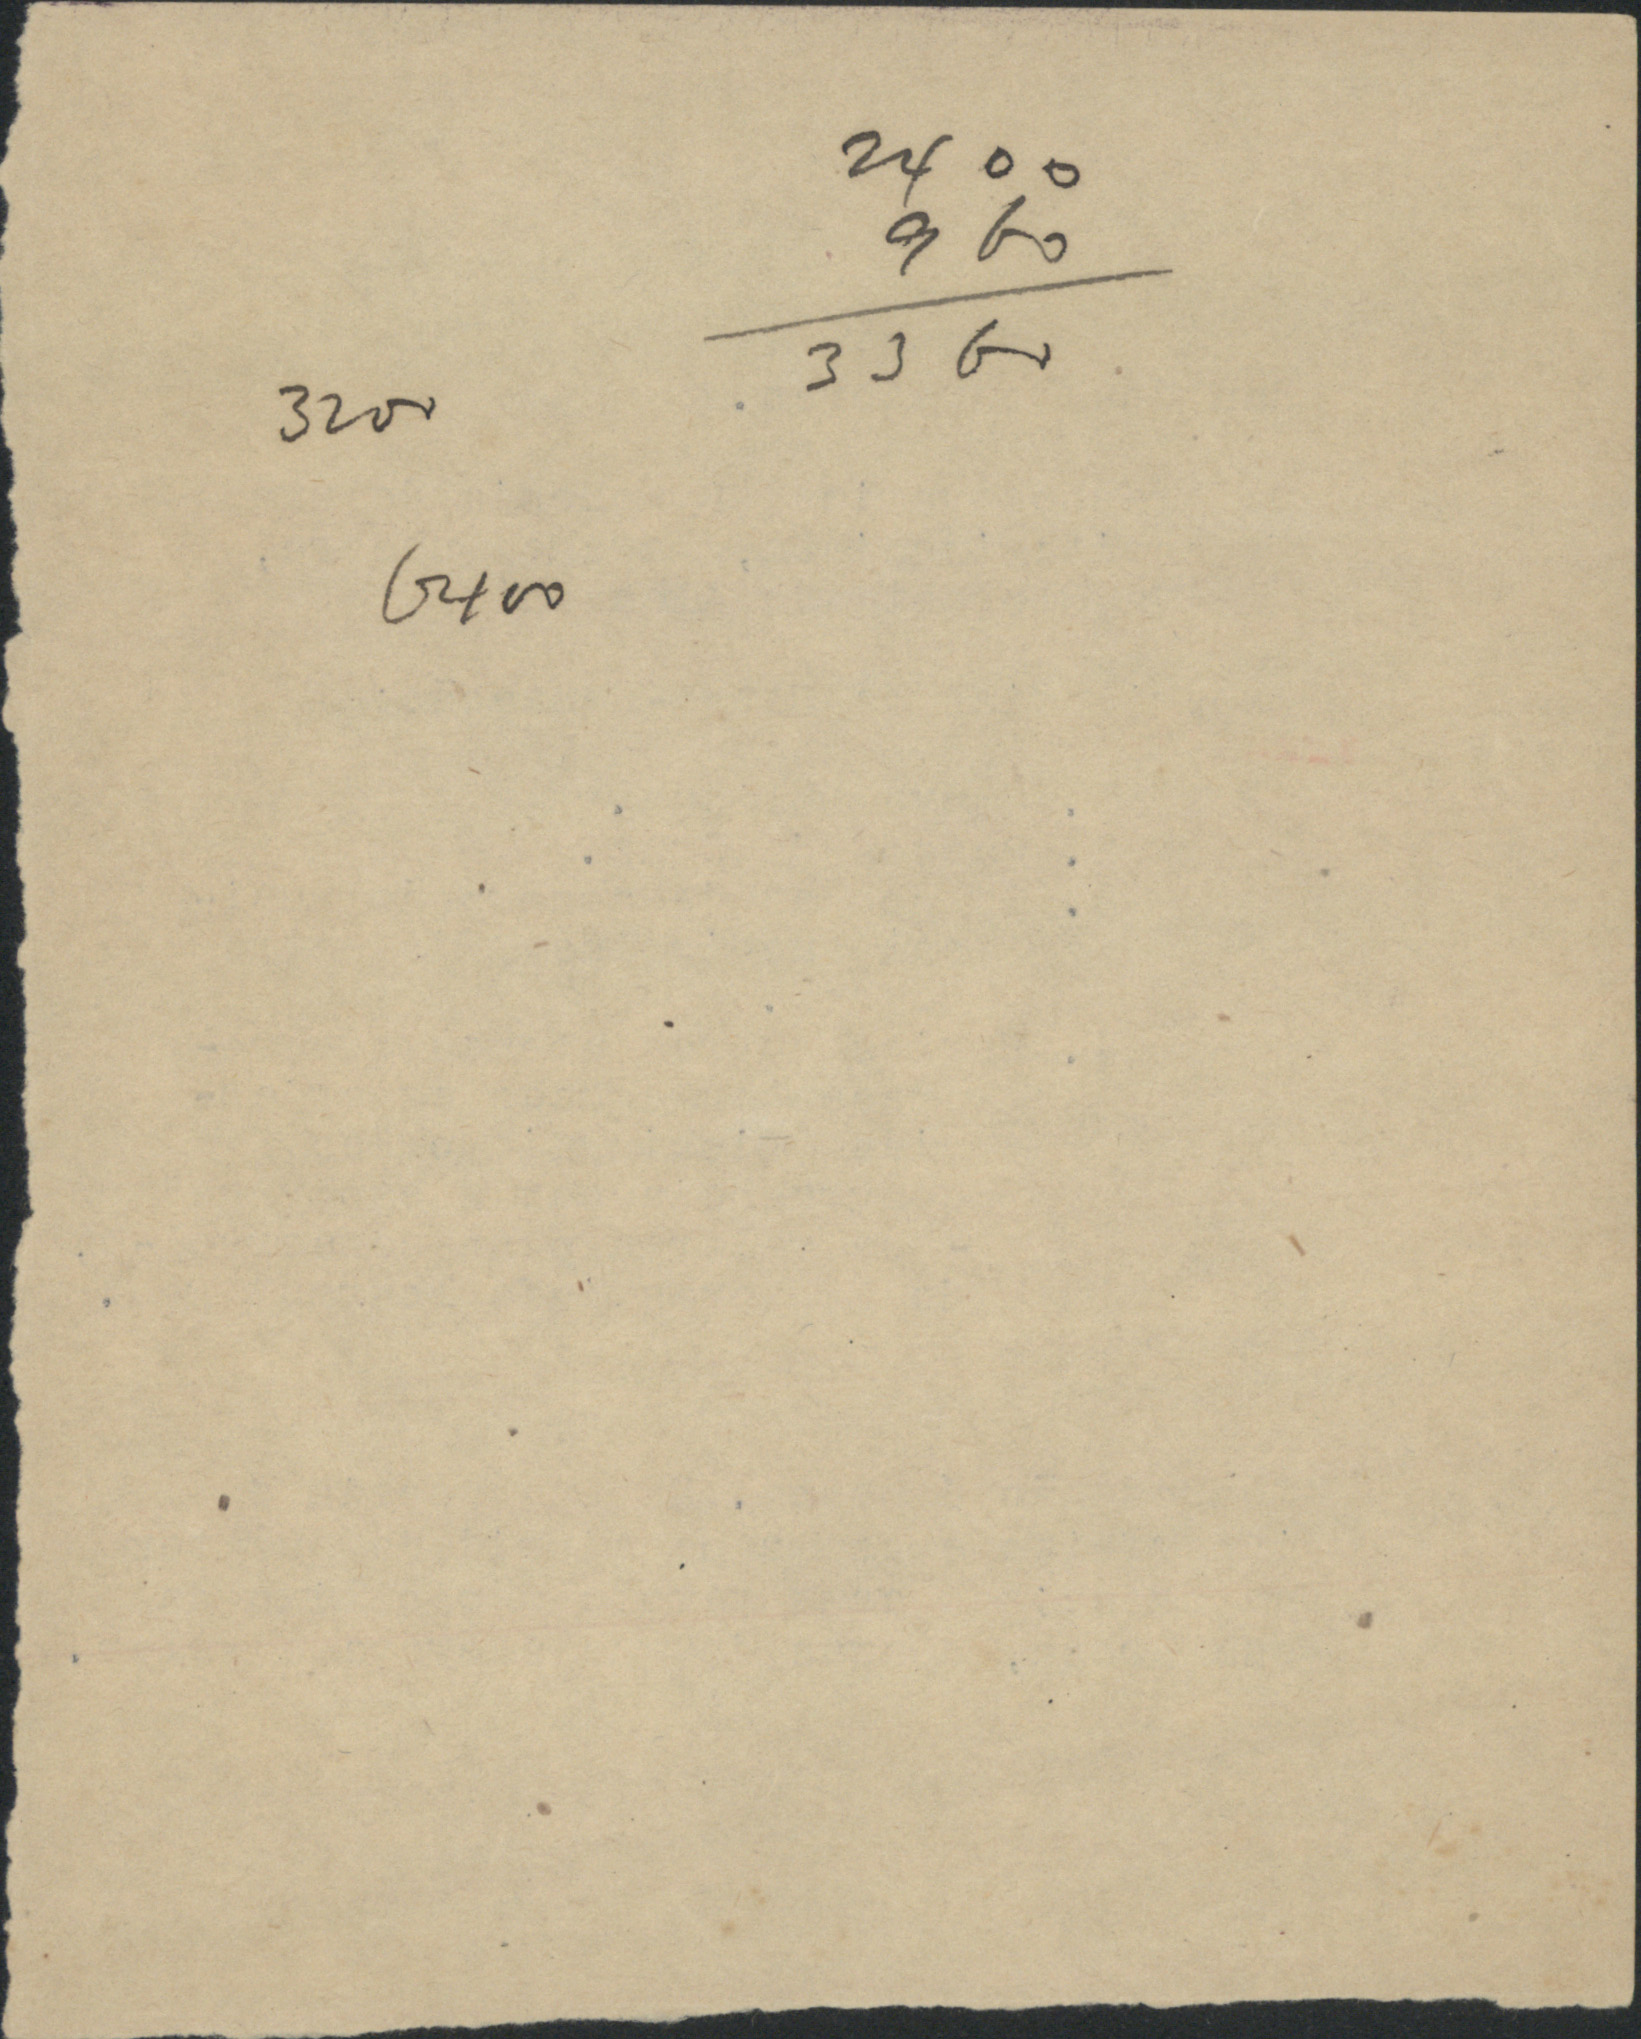 2400
960
3360
3200
6400